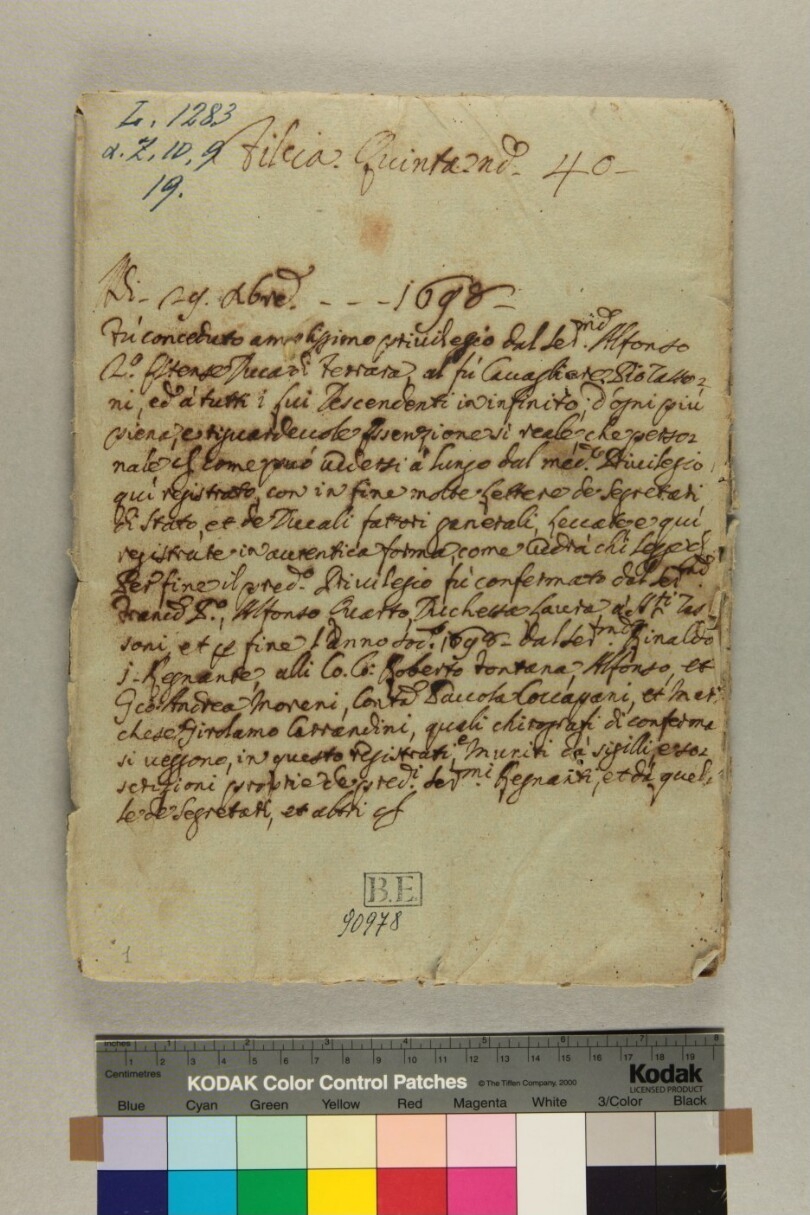 L. 1283
α. Z, 10, 9
19.
Filcia Quinta nº 40
Di 29. Xbre. - - - 1698
Fù conceduto amplissimo privilegio dal Ser.mo Alfonso
2.º Estense Duca di Ferrara, al fù Cavagliere Pio Tasso=
ni, ed à tutti i sui Descendenti in infinito, d'ogni più
piena, e riguardevole Essenzione si reale, che perso=
nale, come può vedersi à lungo dal med.º Privilegio,
quì registrato, con in fine molte Lettere de Segretari
di Stato, et de Ducali fattori generali, e quì
registrate in autentica forma, come vedrà chi
Per fine il pred.º Privilegio fù confermato dal Ser.mo
Franc.º P.º, Alfonso Quarto, Duchessa Laura, à Tas
soni, et fine l'anno 1698 dal Ser.mo Rinaldo
Regnante alli Co. Co: Roberto Fontana, Alfonso, et
Gio: Andrea Moreni, Cont.a Coccapani, et Mar
chese Girolamo Carrandini, quali chirografi di conferma
si vegono, in questo registrati, Muniti da sigilli, e so=
scrizioni proprie de pred.i Ser.mi Regnanti, et da quel=
le de Segretari, et altri
B.E.
90978
1
inches 1 2 3 4 5 6 7 8
Centimetres 1 2 3 4 5 6 7 8 9 10 11 12 13 14 15 16 17 18 19
KODAK Color Control Patches © The Tiffen Company, 2000 Kodak
LICENSED PRODUCT
Blue Cyan Green Yellow Red Magenta White 3/Color Black